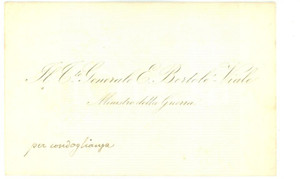 Il Cte Generale E. Bertolè-Viale
Ministro della Guerra
per condoglianze